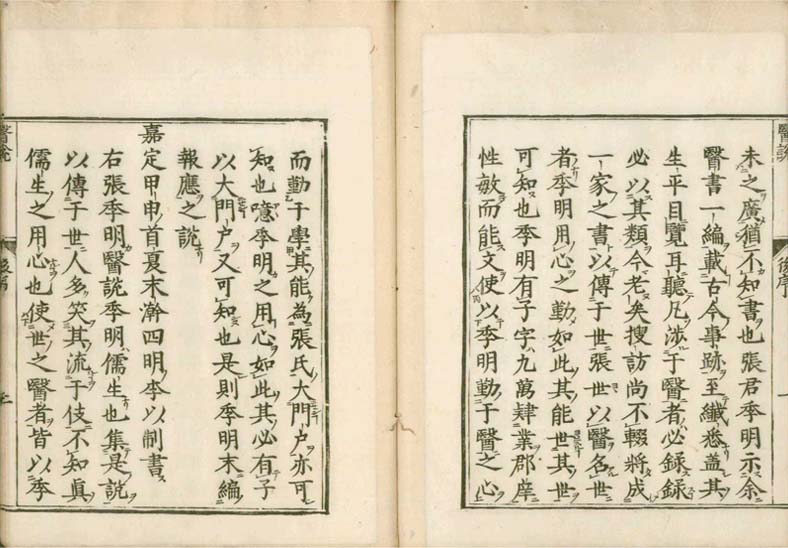 醫說 後序
未之廣猶不知書也張君季明示余
醫書一編載古今事跡至纖悉盖其
生平目覽耳聽凡涉于醫者必録録
必以其類今老矣搜訪尚不輟將成
一家之書以傳于世張世以醫名世
者季明用心之勤如此其能世其世
可知也季明有子字九萬肄業郡庠
性敏而能文使以季明勤于醫之心
而勤于學其能為張氏大門户亦可
知也噫季明之用心如此其必有子
以大門户又可知也是則季明末編
報應之說
嘉定甲申首夏末澣四明李以制書
右張季明醫說季明儒生也集是說
以傳于世人多笑其流于伎不知眞
儒生之用心也使世之醫者皆以季
醫說 後序